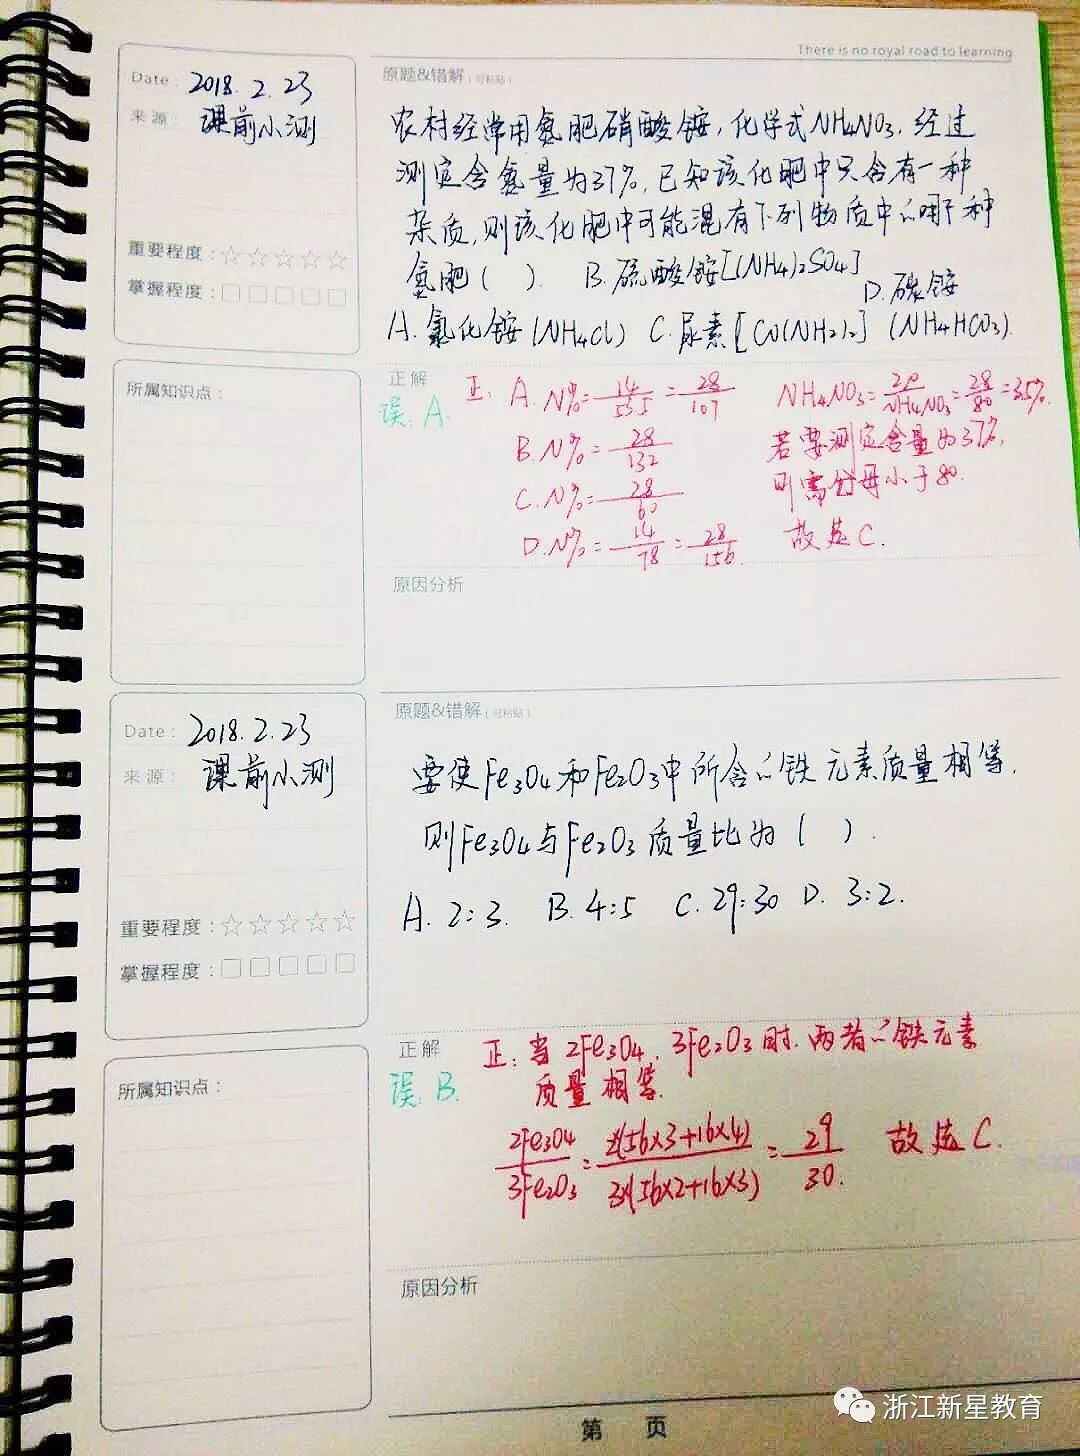 There is no royal road to learning
Date: 2018.2.23
来源: 课前小测
重要程度:☆☆☆☆☆
掌握程度:□□□□□
原题&错解(可粘贴)
农村经常用氮肥硝酸铵,化学式NH4NO3,经过
测定含氮量为37%,已知该化肥中只含有一种
杂质,则该化肥中可能混有下列物质中的哪种
氮肥( ). B.硫酸铵[(NH4)2SO4]
D.碳铵
A.氯化铵(NH4Cl) C.尿素[CO(NH2)2] (NH4HCO3).
所属知识点:
正解
误:A.
正: A. N%=14/53.5=28/107
B.N%=28/132
C.N%=28/60
D.N%=14/78=28/156.
NH4NO3=2N/NH4NO3=28/80=35%.
若要测定含量为37%,
则需分母小于80.
故选C.
原因分析
Date: 2018.2.23
来源: 课前小测
重要程度:☆☆☆☆☆
掌握程度:□□□□□
原题&错解(可粘贴)
要使Fe3O4和Fe2O3中所含的铁元素质量相等.
则Fe3O4与Fe2O3质量比为( ).
A. 2:3. B.4:5 C.29:30 D. 3:2.
所属知识点:
正解
误:B.
正:当2Fe3O4.3Fe2O3时.两者的铁元素
质量相等.
2Fe3O4/3Fe2O3=2(56×3+16×4)/3×(56×2+16×3)=29/30. 故选C.
原因分析
第 页
浙江新星教育